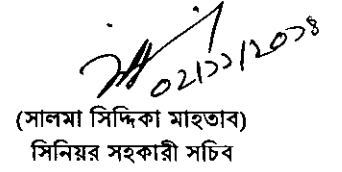 ০২/১১/২০১৪
(সালমা সিদ্দিকা মাহতাব)
সিনিয়র সহকারী সচিব